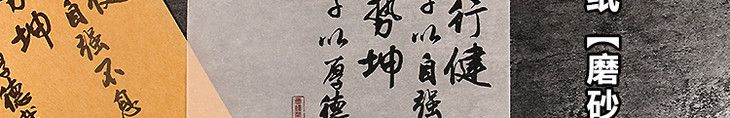 健
自强不息
势坤
厚德
行健
以自强
势坤
子以厚德
纸【磨砂